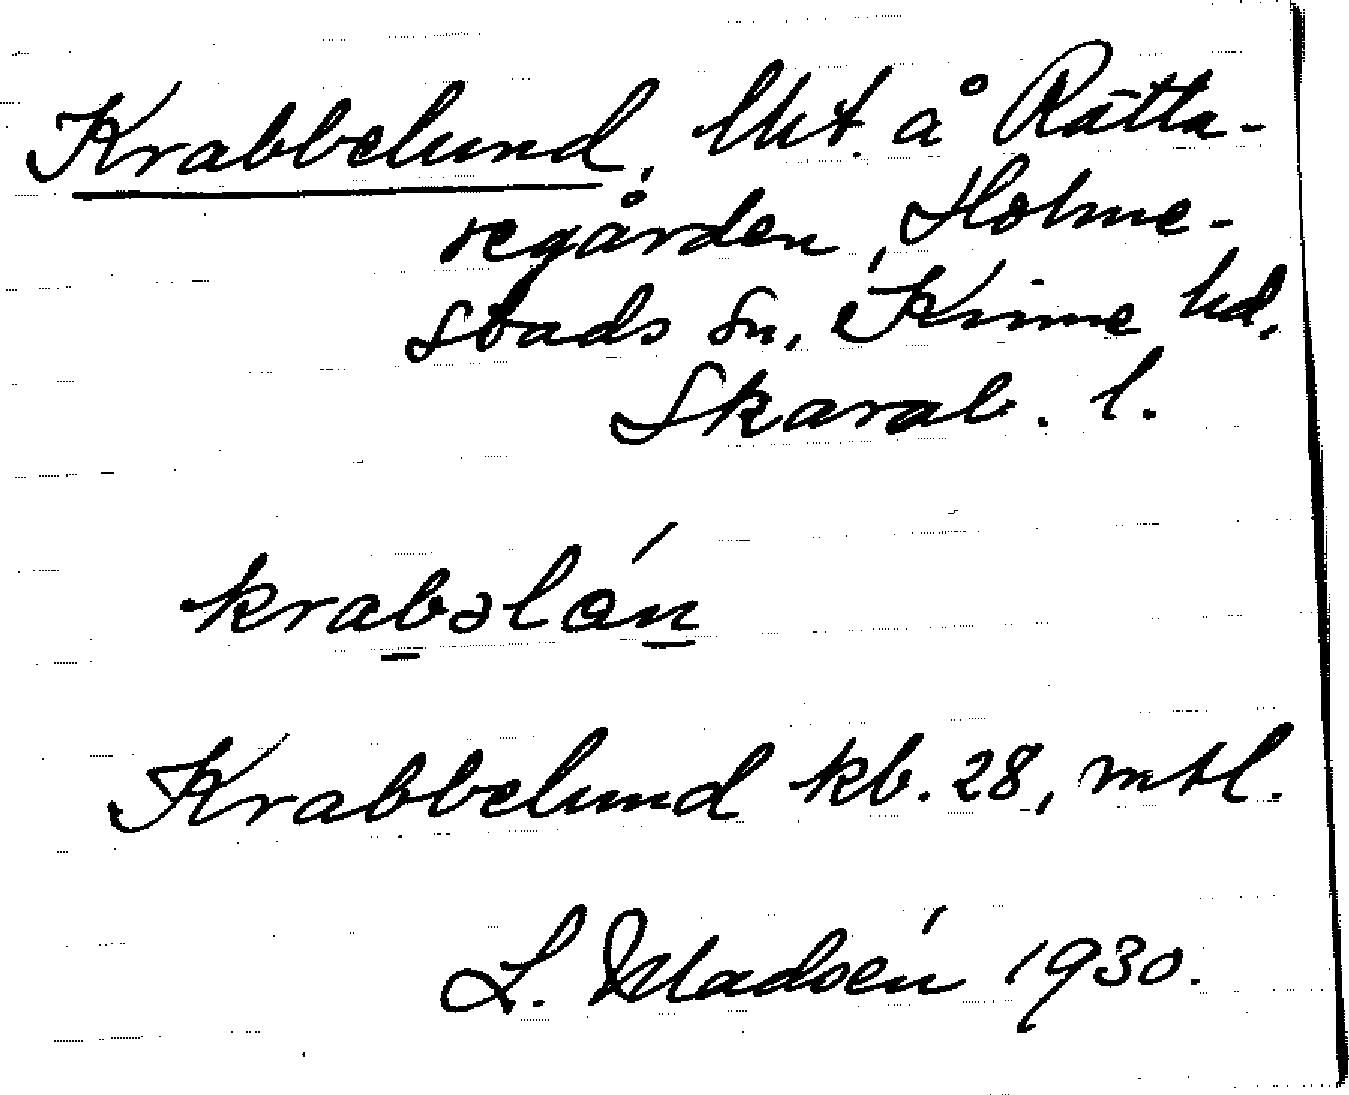 Krabbelund, lht. å Rätta-
regården, Holme-
stads sn, Kinne hd,
Skarab. l.
krabəlón
Krabbelund kb. 28, mtl.
L. Madsén 1930.